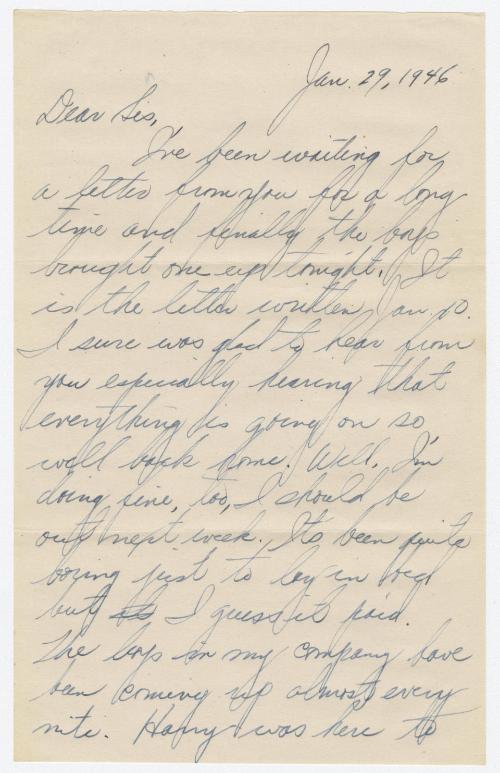 Jan. 29, 1946
Dear Sis,
I've been waiting for
a letter from you for a long
time and finally the boys
brought one up tonight. It
is the letter written Jan. 10.
I sure was glad to hear from
you especially hearing that
everything is going on so
well back home. Well, I'm
doing fine, too, I should be
out next week. It's been quite
boring just to lay in bed
but I guess it paid.
The boys in my company have
been coming up almost every
nite. Harry was here to